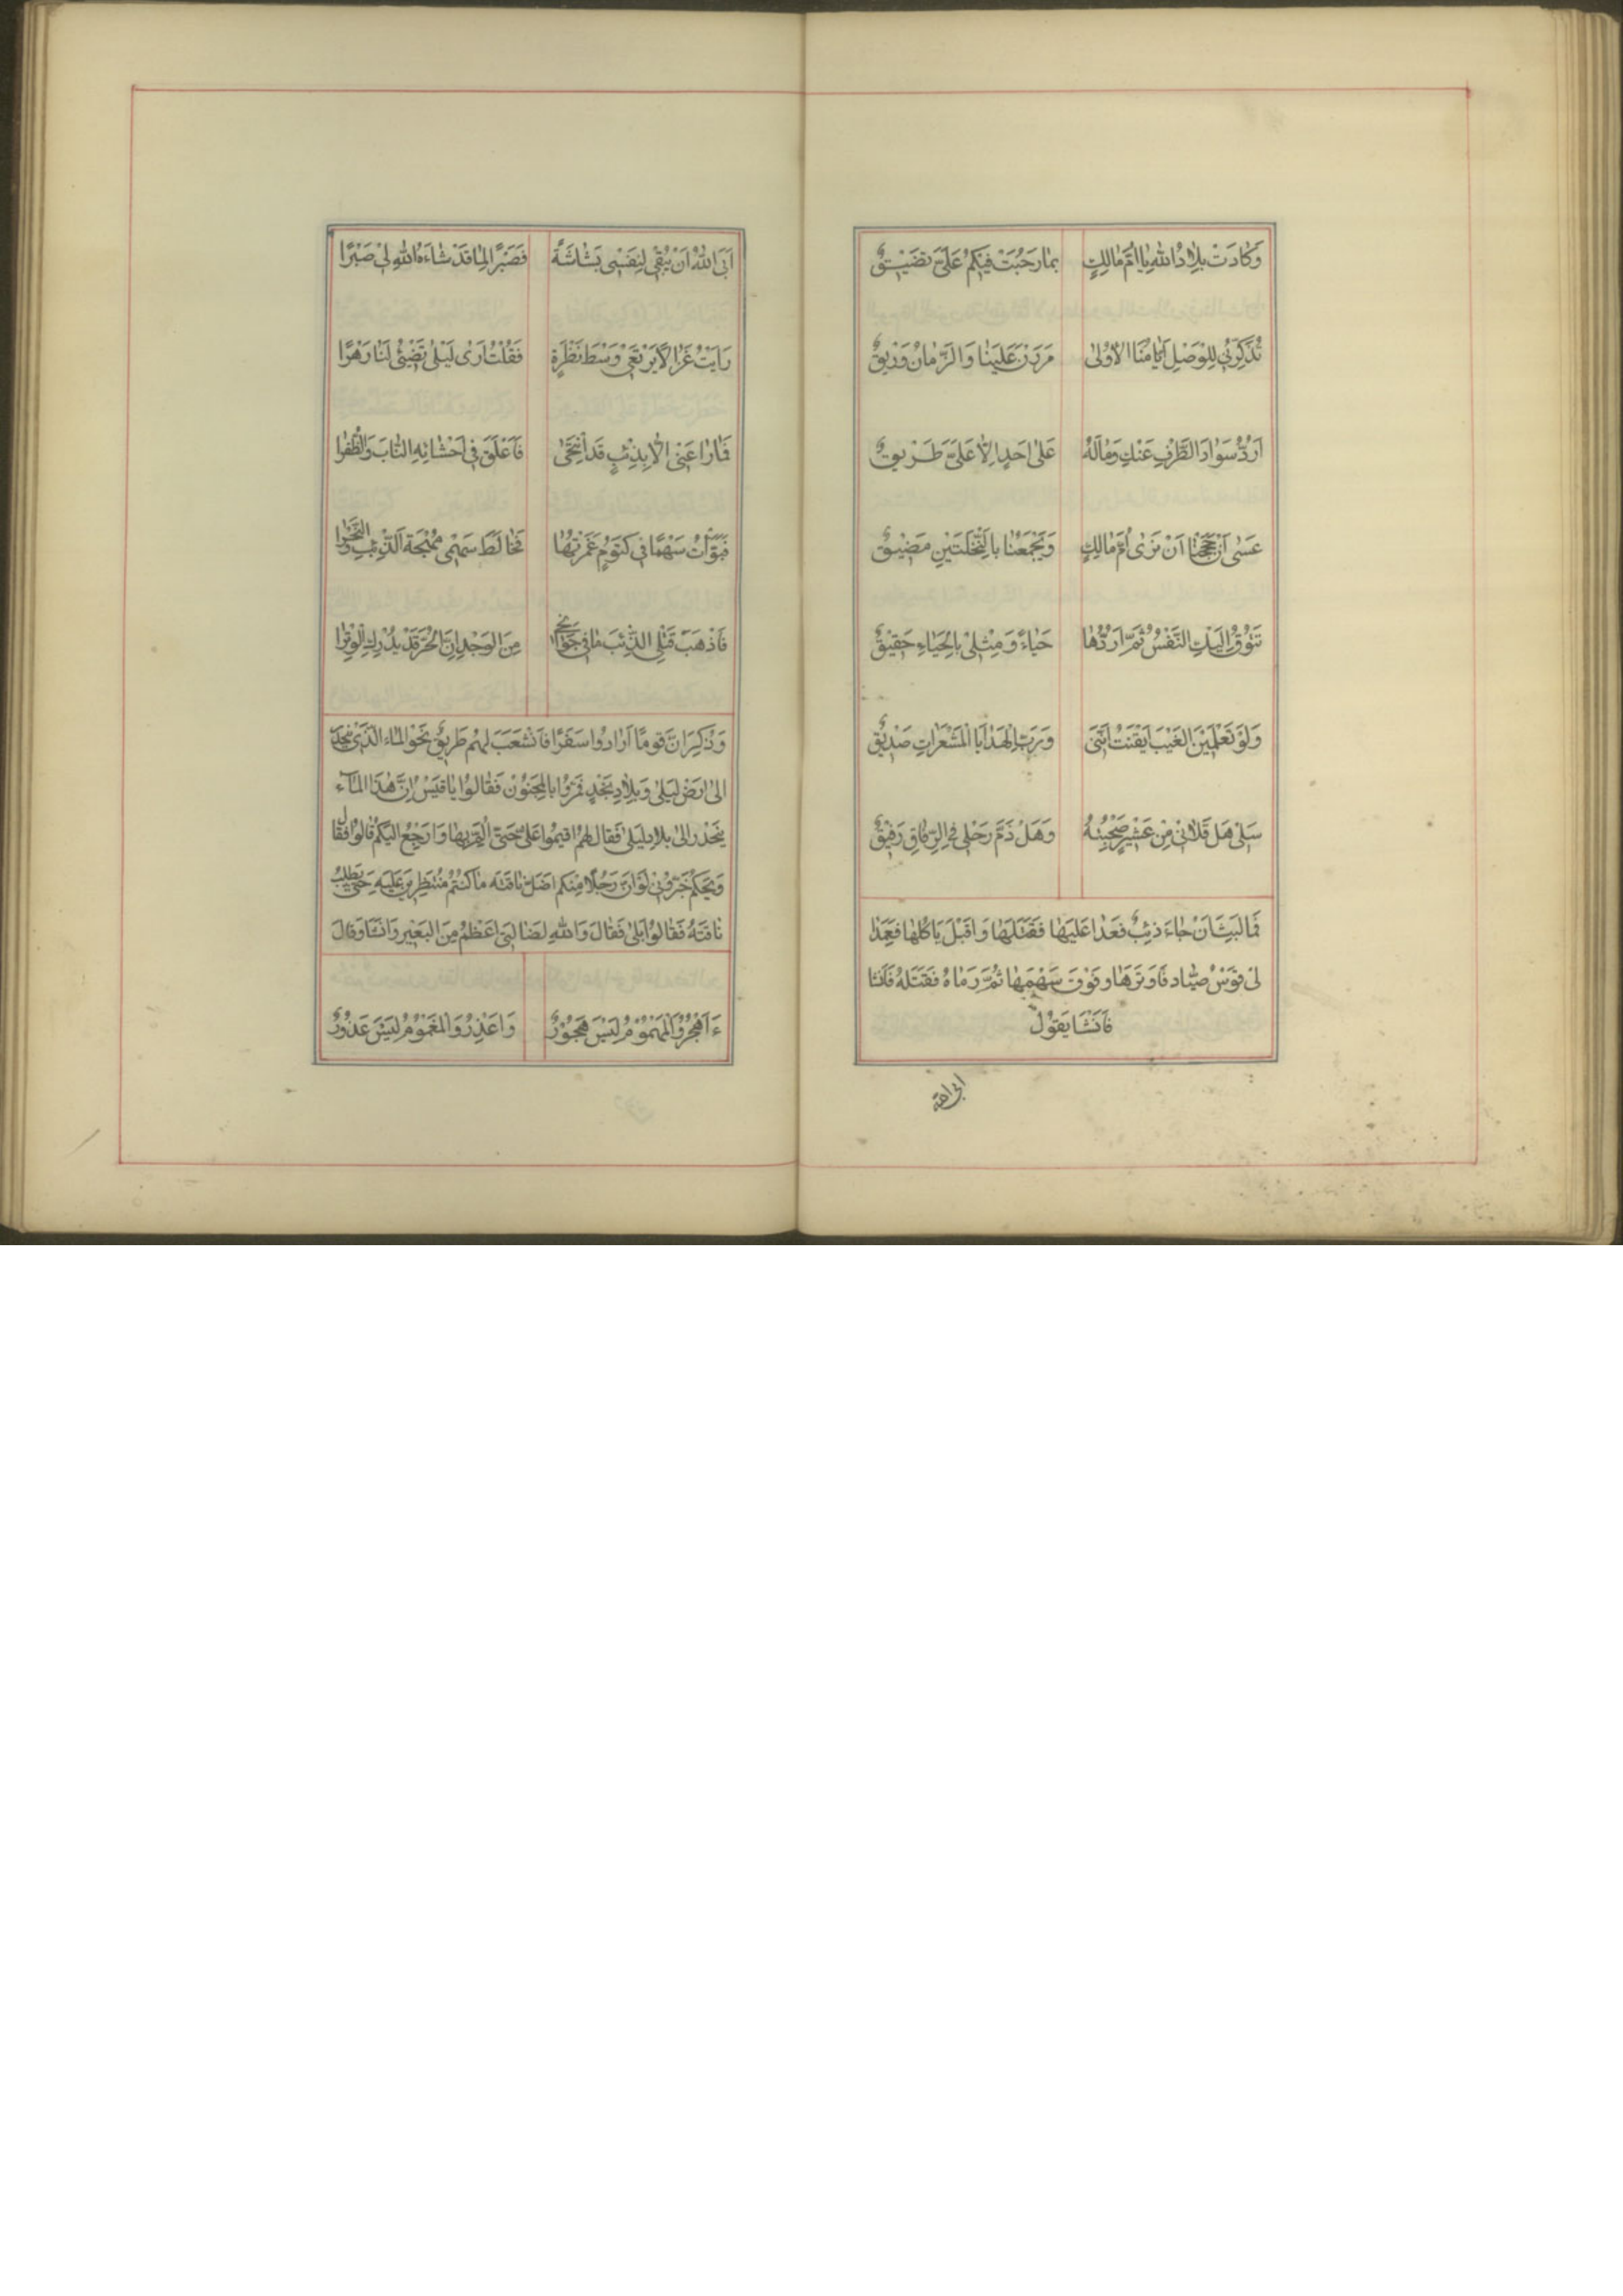 وَكادَت بِلادُ اللهِ يا اُمَّ مالِكٍ بِما رَحُبَت فيكُم عَلَيَّ تَضيقُ
تُذَكِّرُني لِلوَصلِ اَيّامُنا الاُولى مَرَرنَ عَلَينا وَالزَّمانُ وَريقُ
اَرُدُّ سَوادَ الطَّرفِ عَنكِ وَمالَهُ عَلى اَحَدٍ اِلّا عَلَيَّ طَريقُ
عَسى اَن حَجَجنا اَن نَرى اُمَّ مالِكٍ وَيَجمَعُنا بِالنَّخلَتَينِ مَضيقُ
تَتوقُ اِلَيكِ النَّفسُ ثُمَّ اَرُدُّها حَياءً وَمِثلي بِالحَياءِ حَقيقُ
وَلَو تَعلَمينَ الغَيبَ اَيقَنتِ اَنَّني وَرَبِّ الهَدايا المُشعَراتِ صَديقُ
سَلي هَل قَلاني مِن عَشيرٍ صَحِبتُهُ وَهَل ذَمَّ رَحلي في الرِّكاقِ رَفيقُ
فَما لَبِثَ اَن جاءَ ذِئبٌ فَعَدا عَلَيها فَقَتَلَها وَاَقبَلَ يَاكُلُها فَعَمَدَا
لى قَوسُ صَيّاد فَاَوتَرَها وَفَوَّقَ سَهمَها ثُمَّ رَماهُ فَقَتَلَهُ فَاَنشا
فَاَنشَا يَقولُ
ابى الله
اَبَى اللهُ اَن يُبقي لِنَفسي بَشاشَةً فَصَبرًا لِما قَد شاءَهُ اللهُ لي صَبرًا
رَاَيتُ غَزالًا يَرتَعي وَسطَ نَظرَةٍ فَقُلتُ اَرى لَيلى تُضيئُ لَنا زَهرًا
فَما راعَني اِلّا بِذِئبٍ قَد اَنتَحى فَاَعلَقَ في اَحشائِهِ النّابَ وَالظُّفرا
فَبَوَّأتُ سَهمًا في كَتومٍ غَمَزتُها فَخالَطَ سَهمي مُهجَةَ الذِّئبِ وَالنَّحرا
فَاَذهَبَ قَتلي الذِّئبَ ما في جَوانِحي مِنَ الوَجدِ اِنَّ الحُرَّ قَد يُدرِكُ الوِترا
وَذُكِرَ اَنَّ قَومًا اَرادوا سَفَرًا فَاَنشَعَبَ لَهُم طَريقٌ نَحوَ الماءِ الَّذي يَنجَذِ
اِلى اَرضِ لَيلى وَبِلادِ نَجدٍ فَمَرّوا بِالمَجنونِ فَقالوا يا قَيسُ اِنَّ هٰذا الماءَ
يَنجَذِر اِلى بِلادِ لَيلى فَقالَ لَهُم اَقيموا عَلَيَّ حَتّى اَلِمَّ بِها وَاَرجِعَ اِلَيكُم قالوا لا فَقالَ
وَيحَكُم خَبِّروني لَو اَنَّ رَجُلًا مِنكُم اَضَلَّ ناقَتَهُ ما كُنتُم مُنتَظِرينَ عَلَيهِ حَتّى يَطلُبَ
ناقَتَهُ فَقالوا بَلى فَقالَ وَاللهِ لَصاحِبَتي اَعظَمُ مِنَ البَعيرِ وَاَنشَا وَقالَ
ءَاَهجُرُ وَالمَهمومُ لَيسَ هَجورُ وَاَعذِرُ وَالمَغمومُ لَيسَ عَذورُ